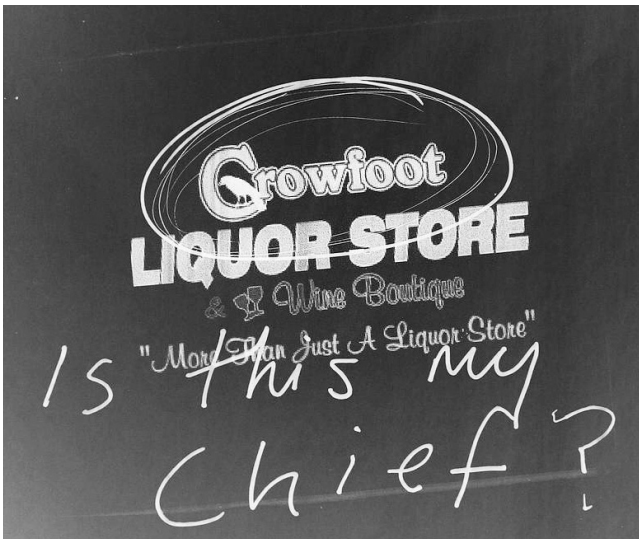 Crowfoot
LIQUOR STORE
& Wine Boutique
"More Than Just A Liquor Store"
Is this my
Chief?